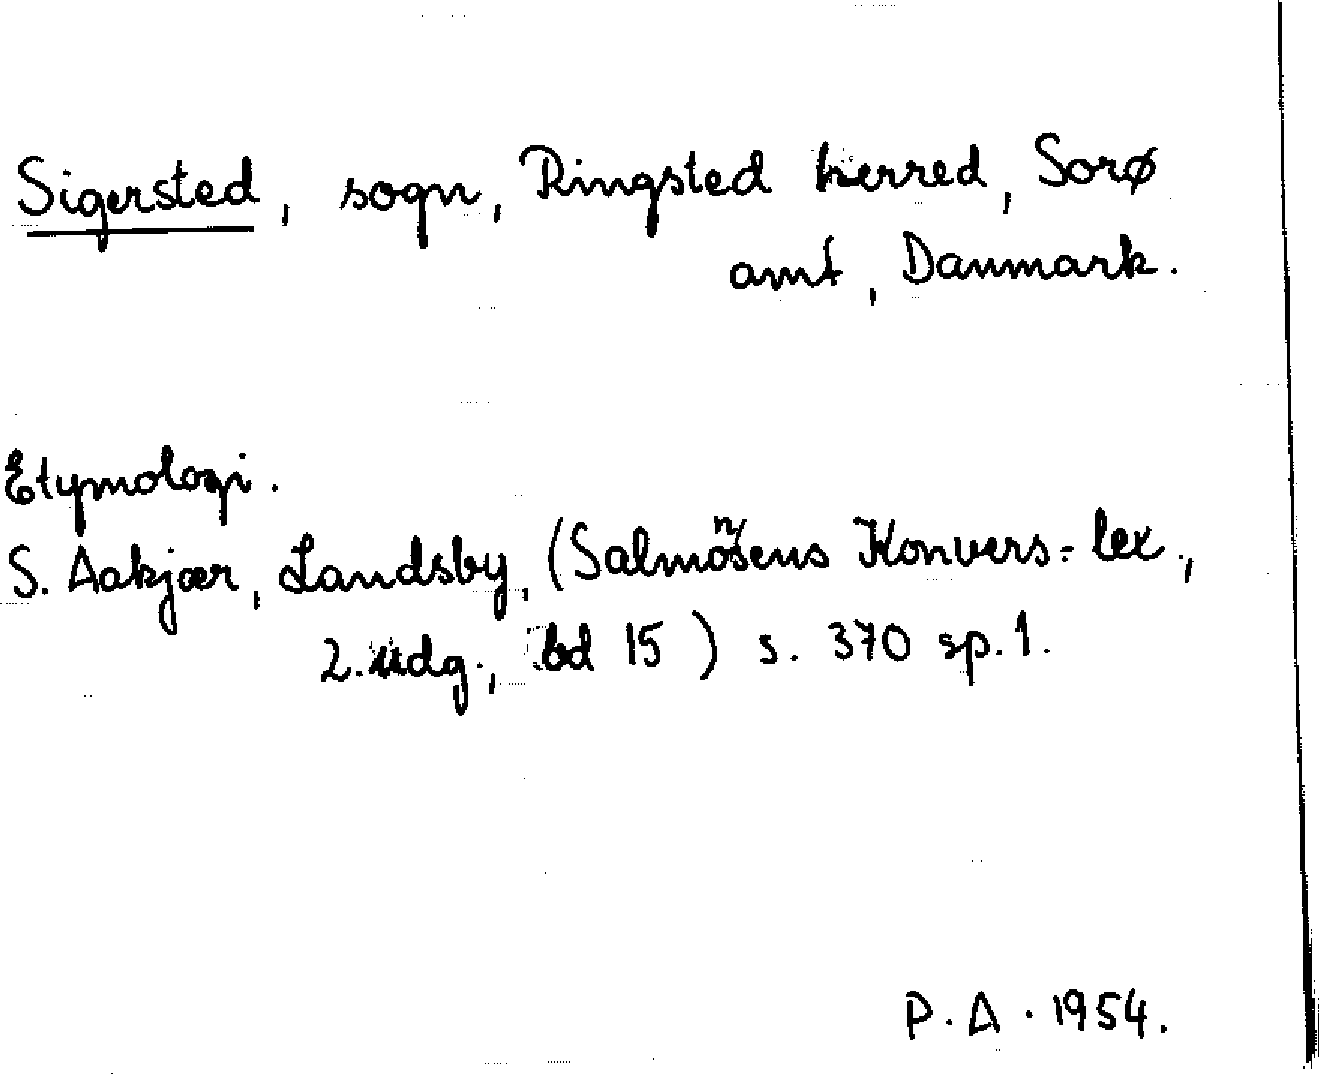 Sigersted, sogn, Ringsted herred, Sorø
amt, Danmark.
Etymologi.
S. Aakjær, Landsby, (Salmonsens Konvers.-lex.,
2. udg., bd 15) s. 370 sp. 1.
P. A. 1954.